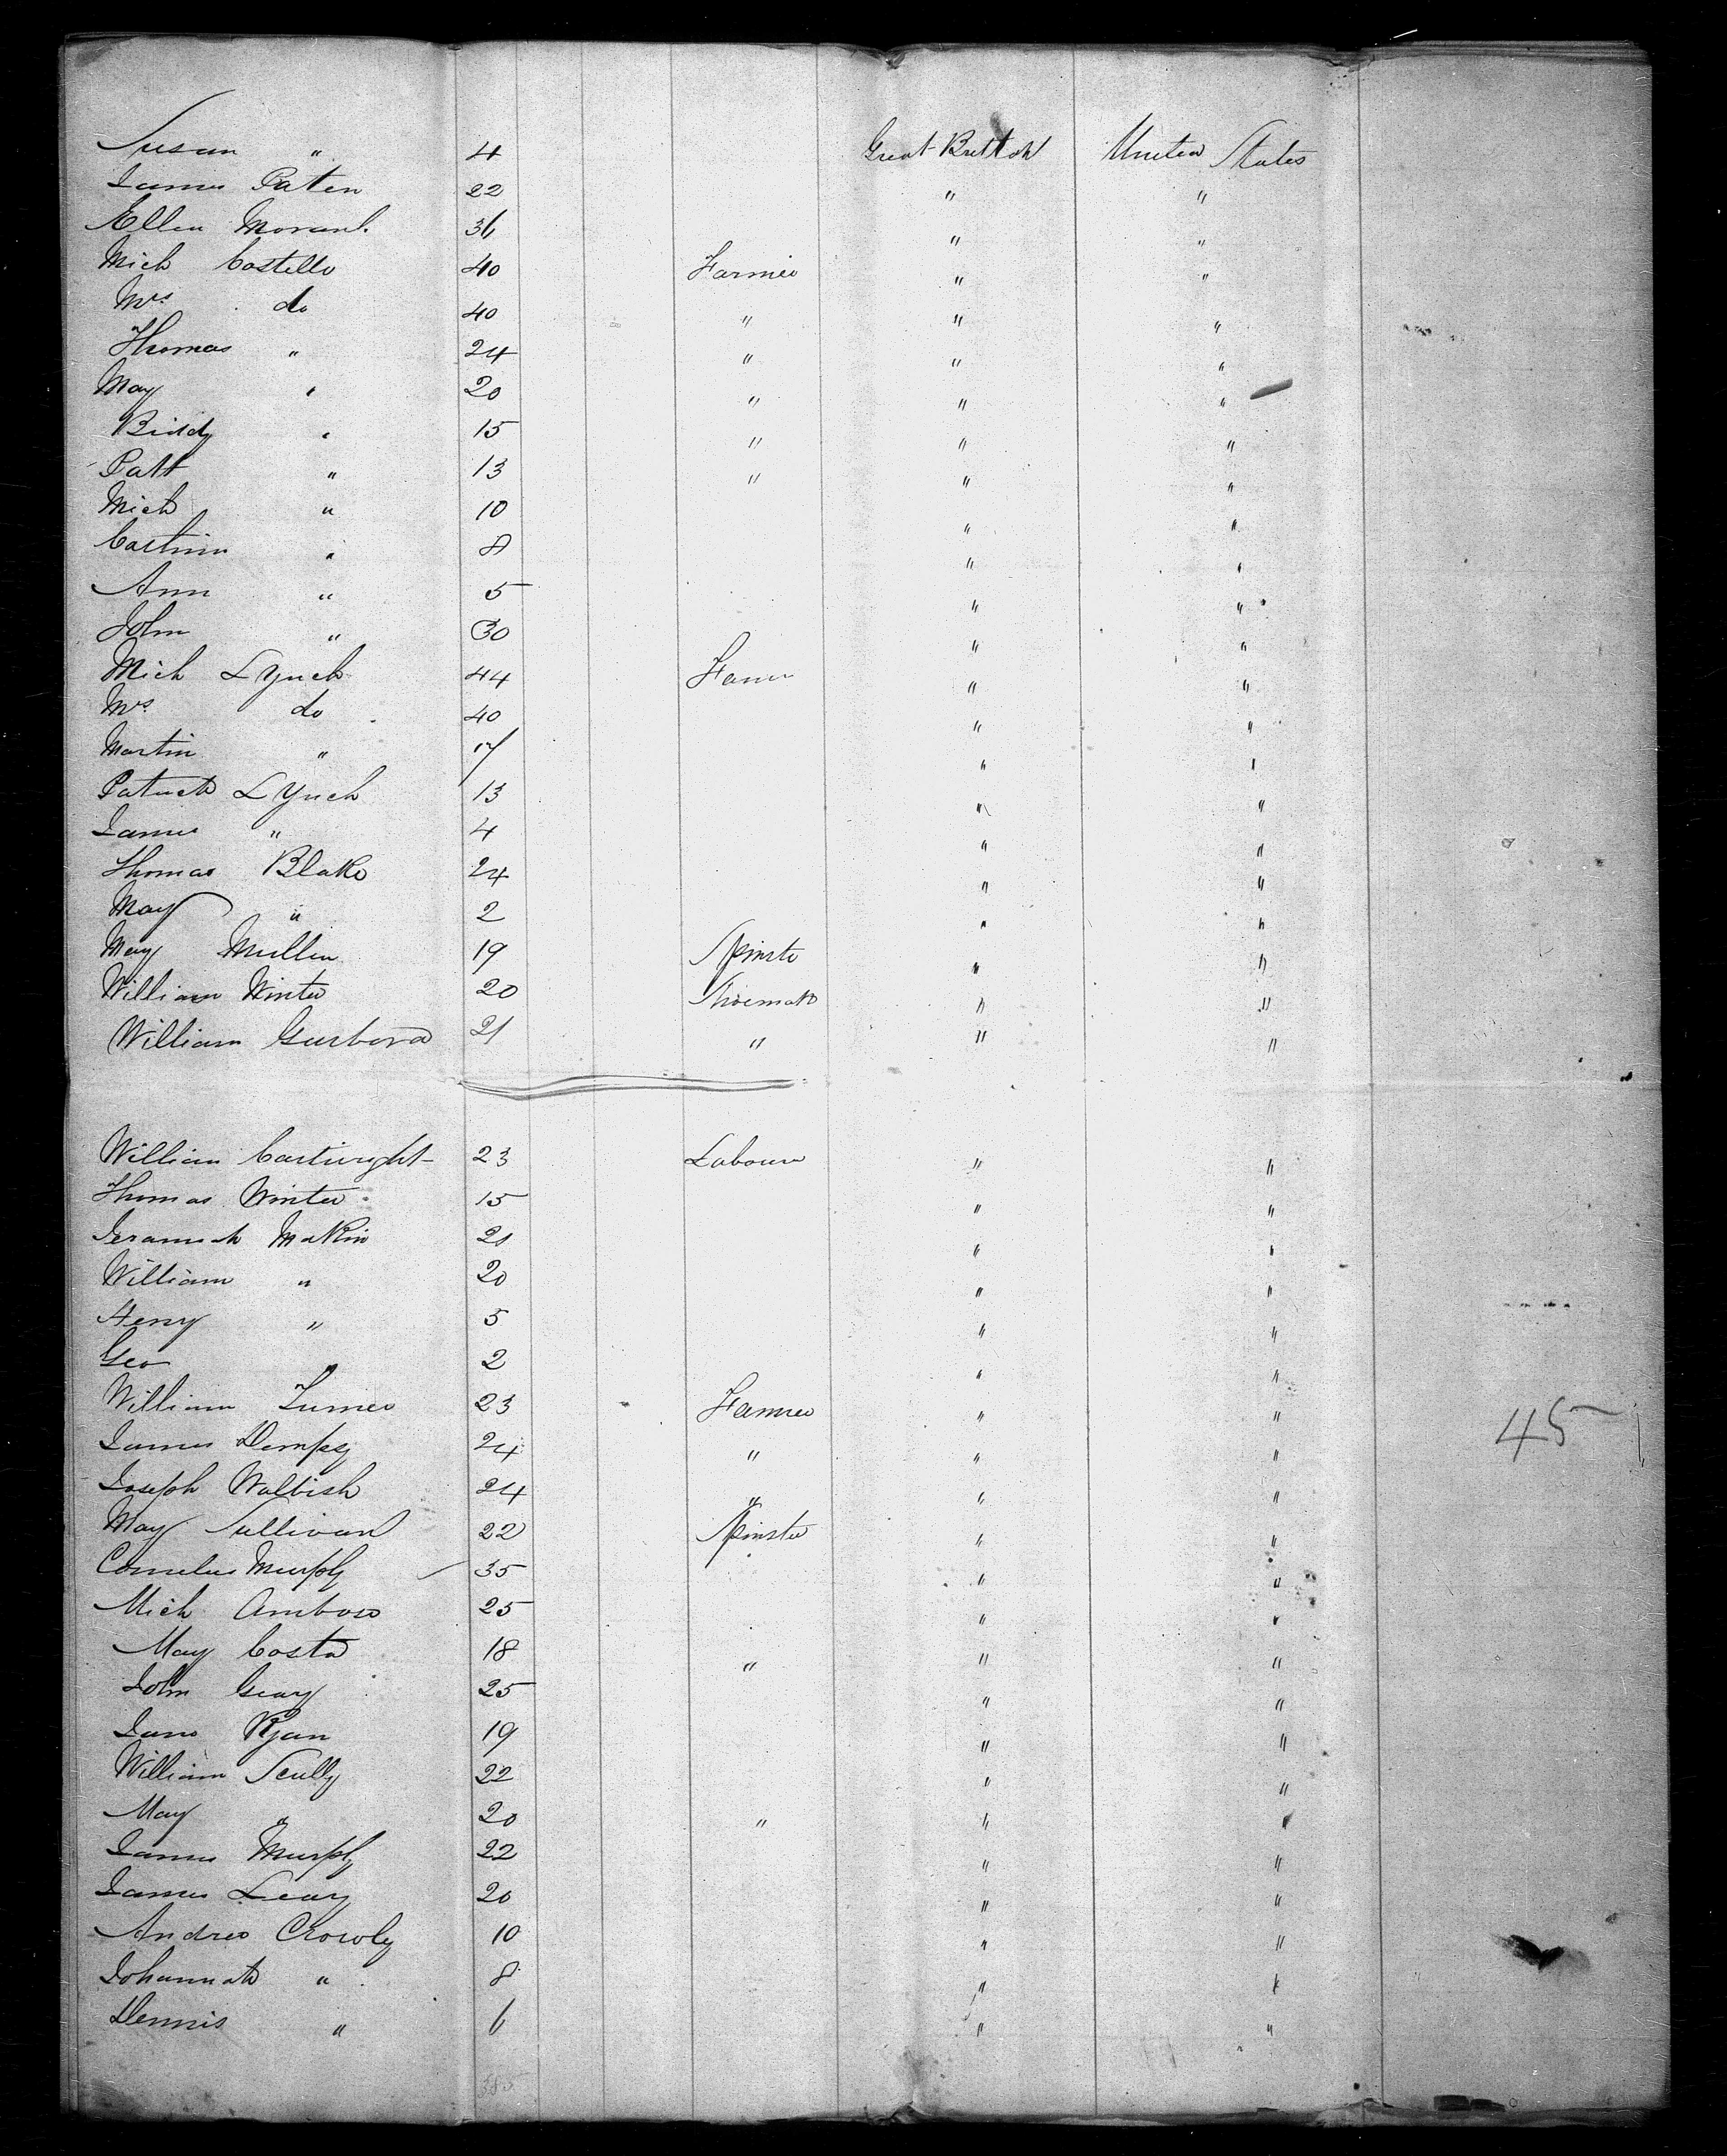 Susan " 4 Great Brittain United States
James Paten 22 " "
Ellen Moran 36 " "
Mich Costello 40 Farmer " "
Mrs do 40 " " "
Thomas " 24 " " "
May " 20 " " "
Biddy " 15 " " "
Patt " 13 " " "
Mich " 10 " "
" 8 " "
Ann " 5 " "
John " 30 " "
Mich Lynch 44 Farmer " "
Mrs do 40 " "
Martin " 17 " "
Patrick Lynch 13 " "
James " 4 " "
Thomas Blake 24 " "
May " 2 " "
May Mullen 19 Spinste " "
William Winter 20 Shoemak " "
William 21 " " "
William Cartwright 23 Labourer " "
Thomas Winter 15 " "
Jeramiah Makin 21 " "
William " 20 " "
Henry " 5 " "
Geo " 2 " "
William Turner 23 Farmer " "
James Dempsy 24 " " "
Joseph Walbish 24 " " "
May Sullivan 22 Spinster " "
Cornelius Murphy 35 " "
Mich Ambrose 25 " "
May Costa 18 " " "
John Geary 25 " "
Jane Ryan 19 " "
William Scully 22 " "
May " 20 " " "
James Murphy 22 " "
James Leary 20 " "
Andrew Crowly 10 " "
Johannah " 8 " "
Dennis " 6 " "
385
45